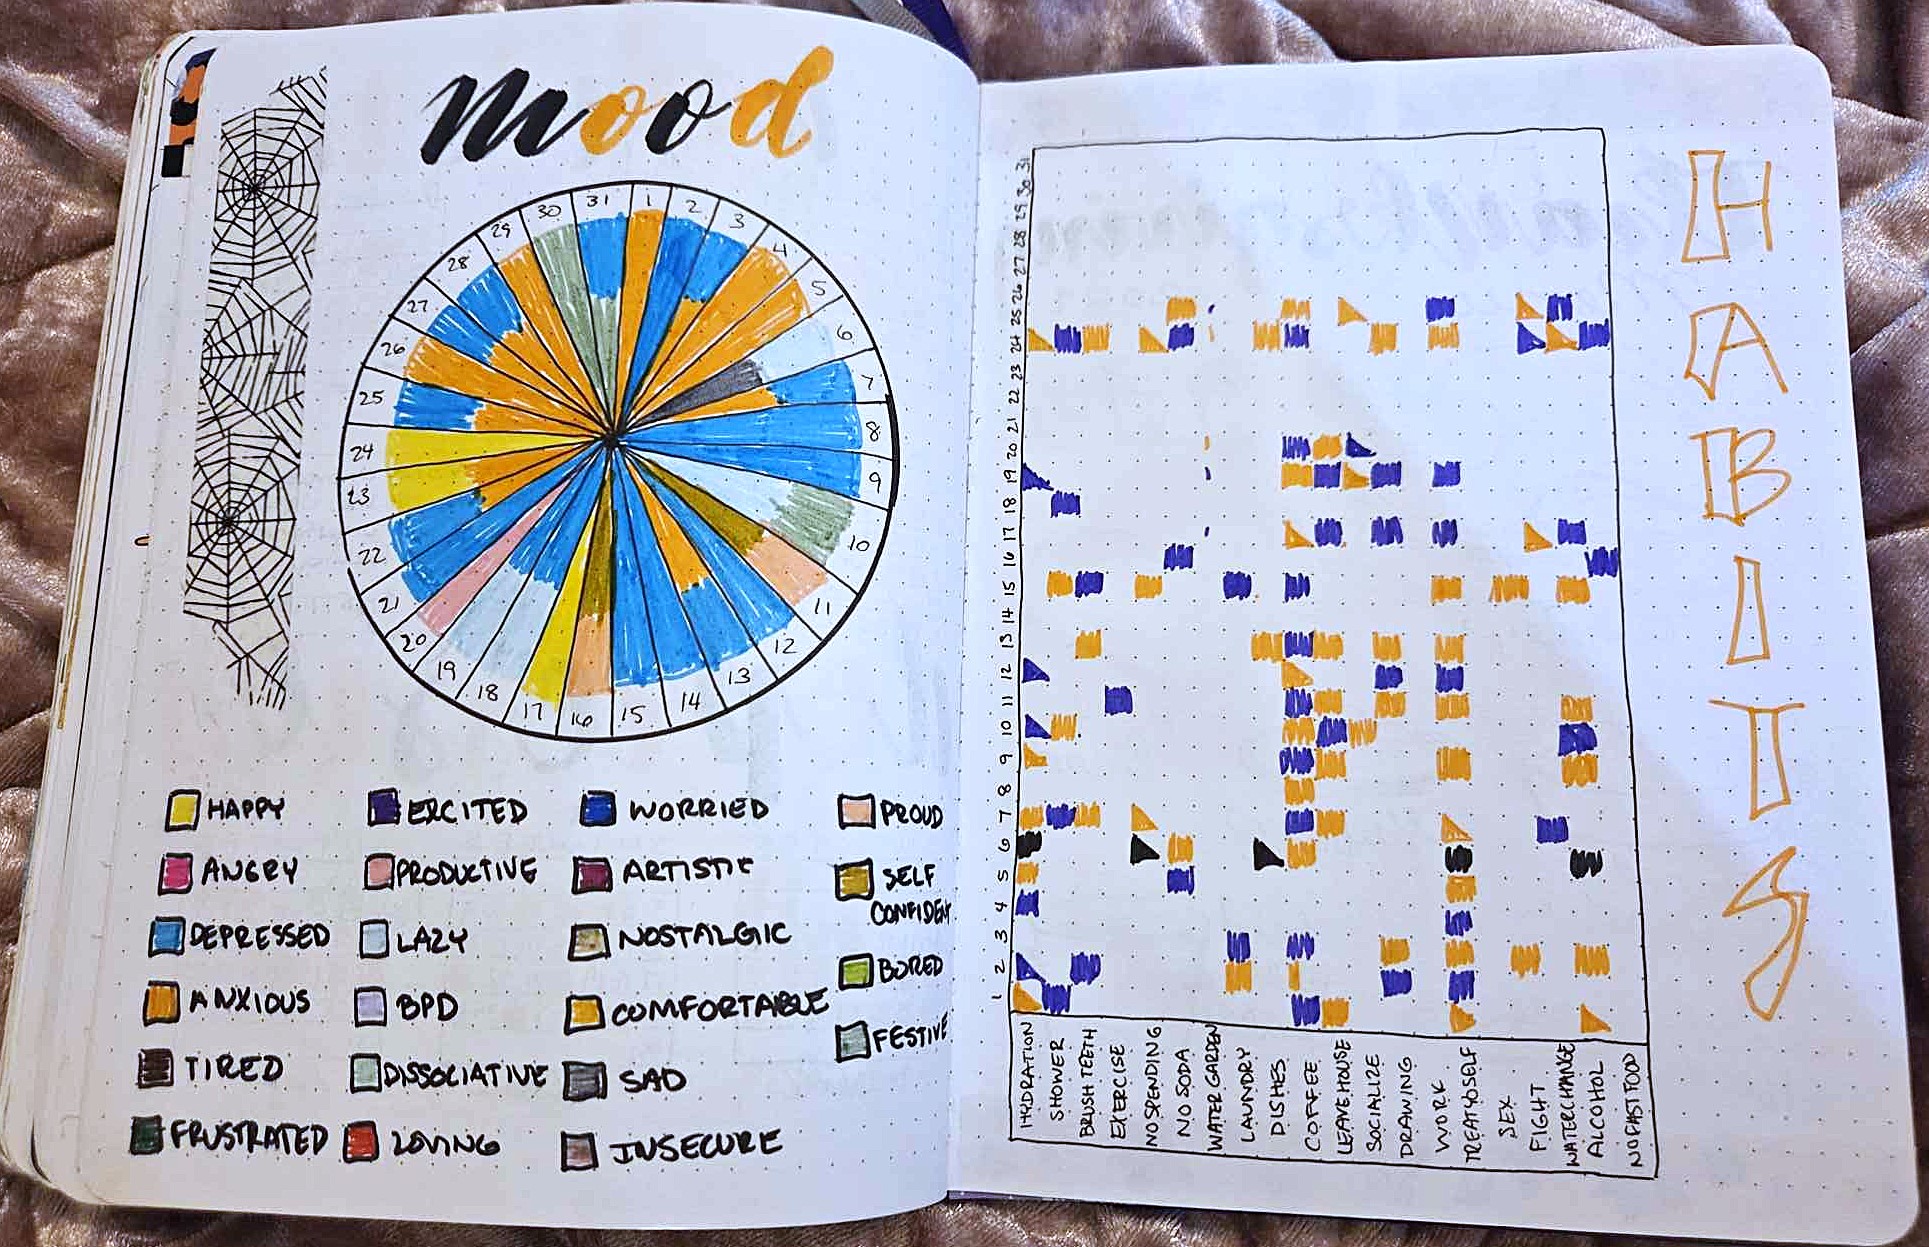 mood
1
2
3
4
5
6
7
8
9
10
11
12
13
14
15
16
17
18
19
20
21
22
23
24
25
26
27
28
29
30
31
HAPPY
EXCITED
WORRIED
PROUD
ANGRY
PRODUCTIVE
ARTISTIC
SELF
CONFIDENT
DEPRESSED
LAZY
NOSTALGIC
BORED
ANXIOUS
BPD
COMFORTABLE
FESTIVE
TIRED
DISSOCIATIVE
SAD
FRUSTRATED
LOVING
INSECURE
HABITS
31
30
29
28
27
26
25
24
23
22
21
20
19
18
17
16
15
14
13
12
11
10
9
8
7
6
5
4
3
2
1
HYDRATION
SHOWER
BRUSH TEETH
EXERCISE
NO SPENDING
NO SODA
WATER GARDEN
LAUNDRY
DISHES
COFFEE
LEAVE HOUSE
SOCIALIZE
DRAWING
WORK
TREAT YO SELF
SEX
FIGHT
WATER CHANGE
ALCOHOL
NO FAST FOOD